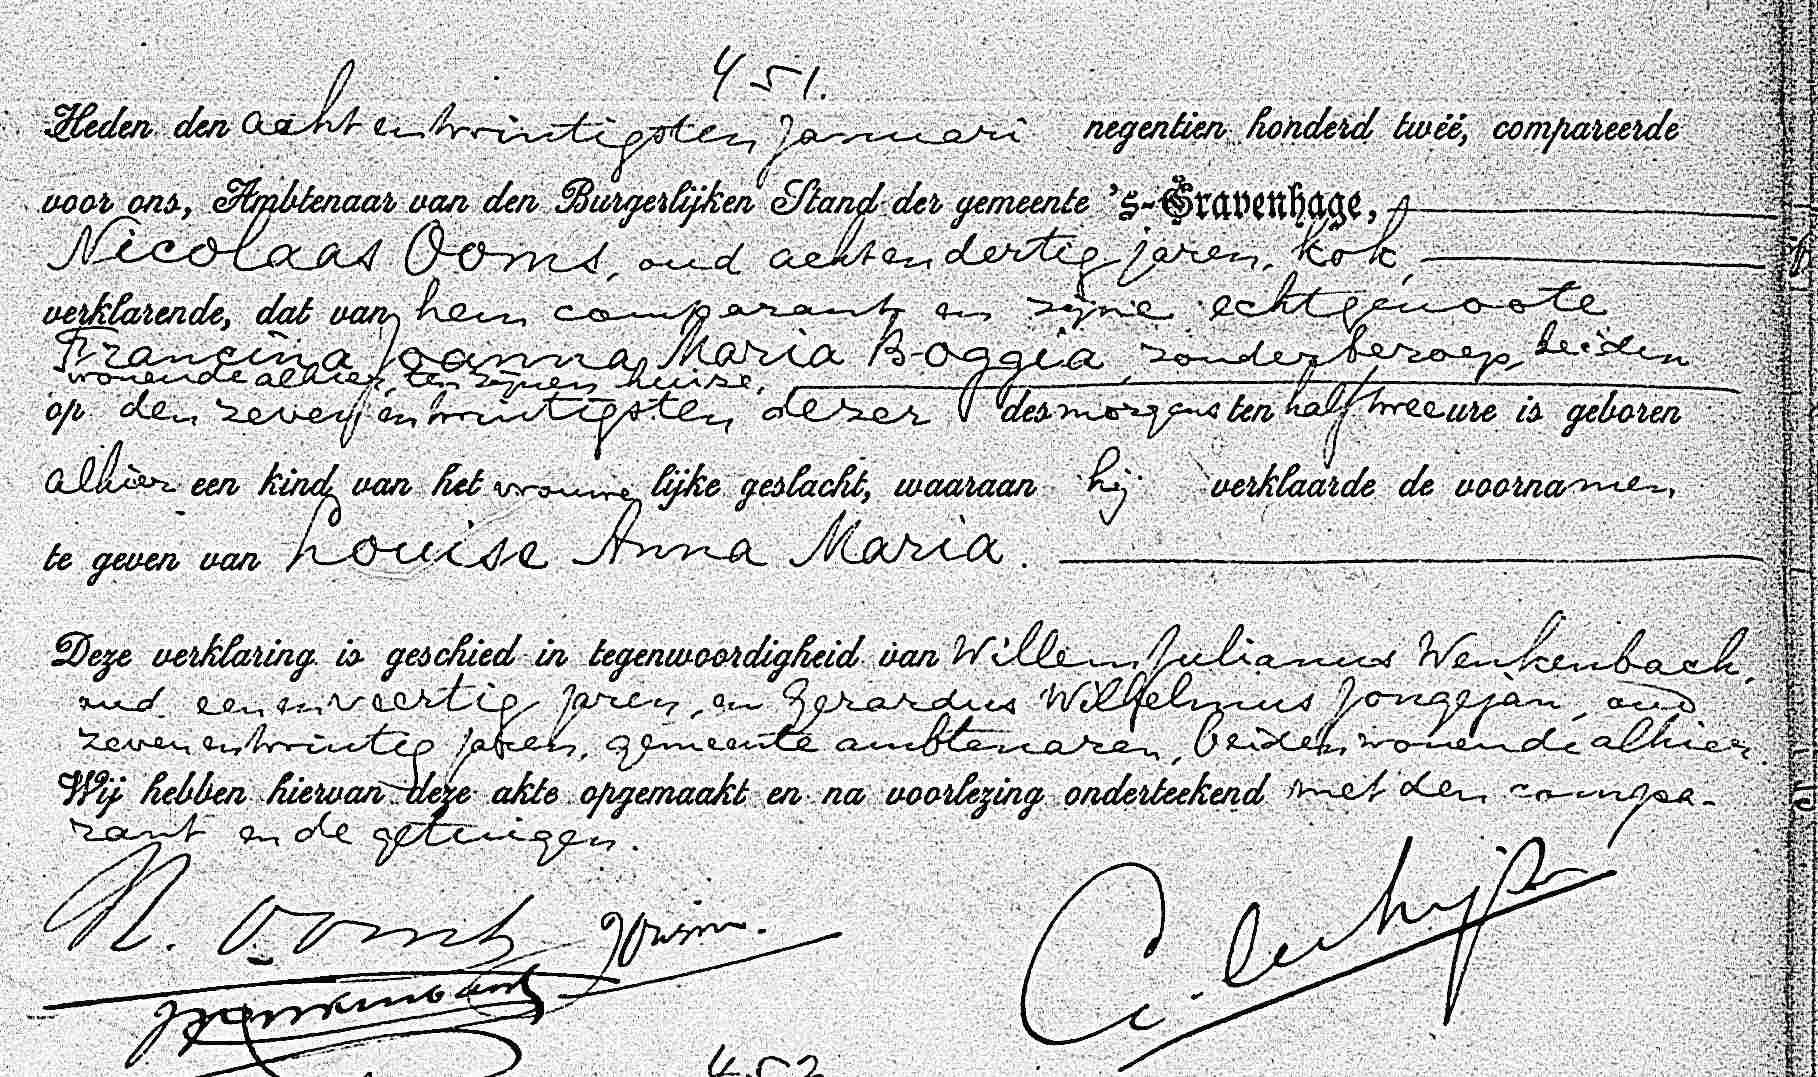 451.
Heden den achtentwintigsten Januari negentien honderd twëë, compareerde
voor ons, Ambtenaar van den Burgerlijken Stand der gemeente 's-Gravenhage,
Nicolaas Ooms, oud achtendertig jaren, kok,
verklarende, dat van hem comparant en zijne echtgenoote
Francina Joanna Maria Boggia, zonder beroep, beiden
wonende alhier, ten zijnen huize,
op den zevenentwintigsten dezer des morgens ten half twee ure is geboren
alhier een kind van het vrouwelijke geslacht, waaraan hij verklaarde de voornamen
te geven van Louise Anna Maria.
Deze verklaring is geschied in tegenwoordigheid van Willem Julianus Wenkenbach,
oud eenenveertig jaren, en Gerardus Wilhelmus Jongejan, oud
zevenentwintig jaren, gemeente ambtenaren, beiden wonende alhier.
Wij hebben hiervan deze akte opgemaakt en na voorlezing onderteekend met den compa-
rant en de getuigen.
N. Ooms
452